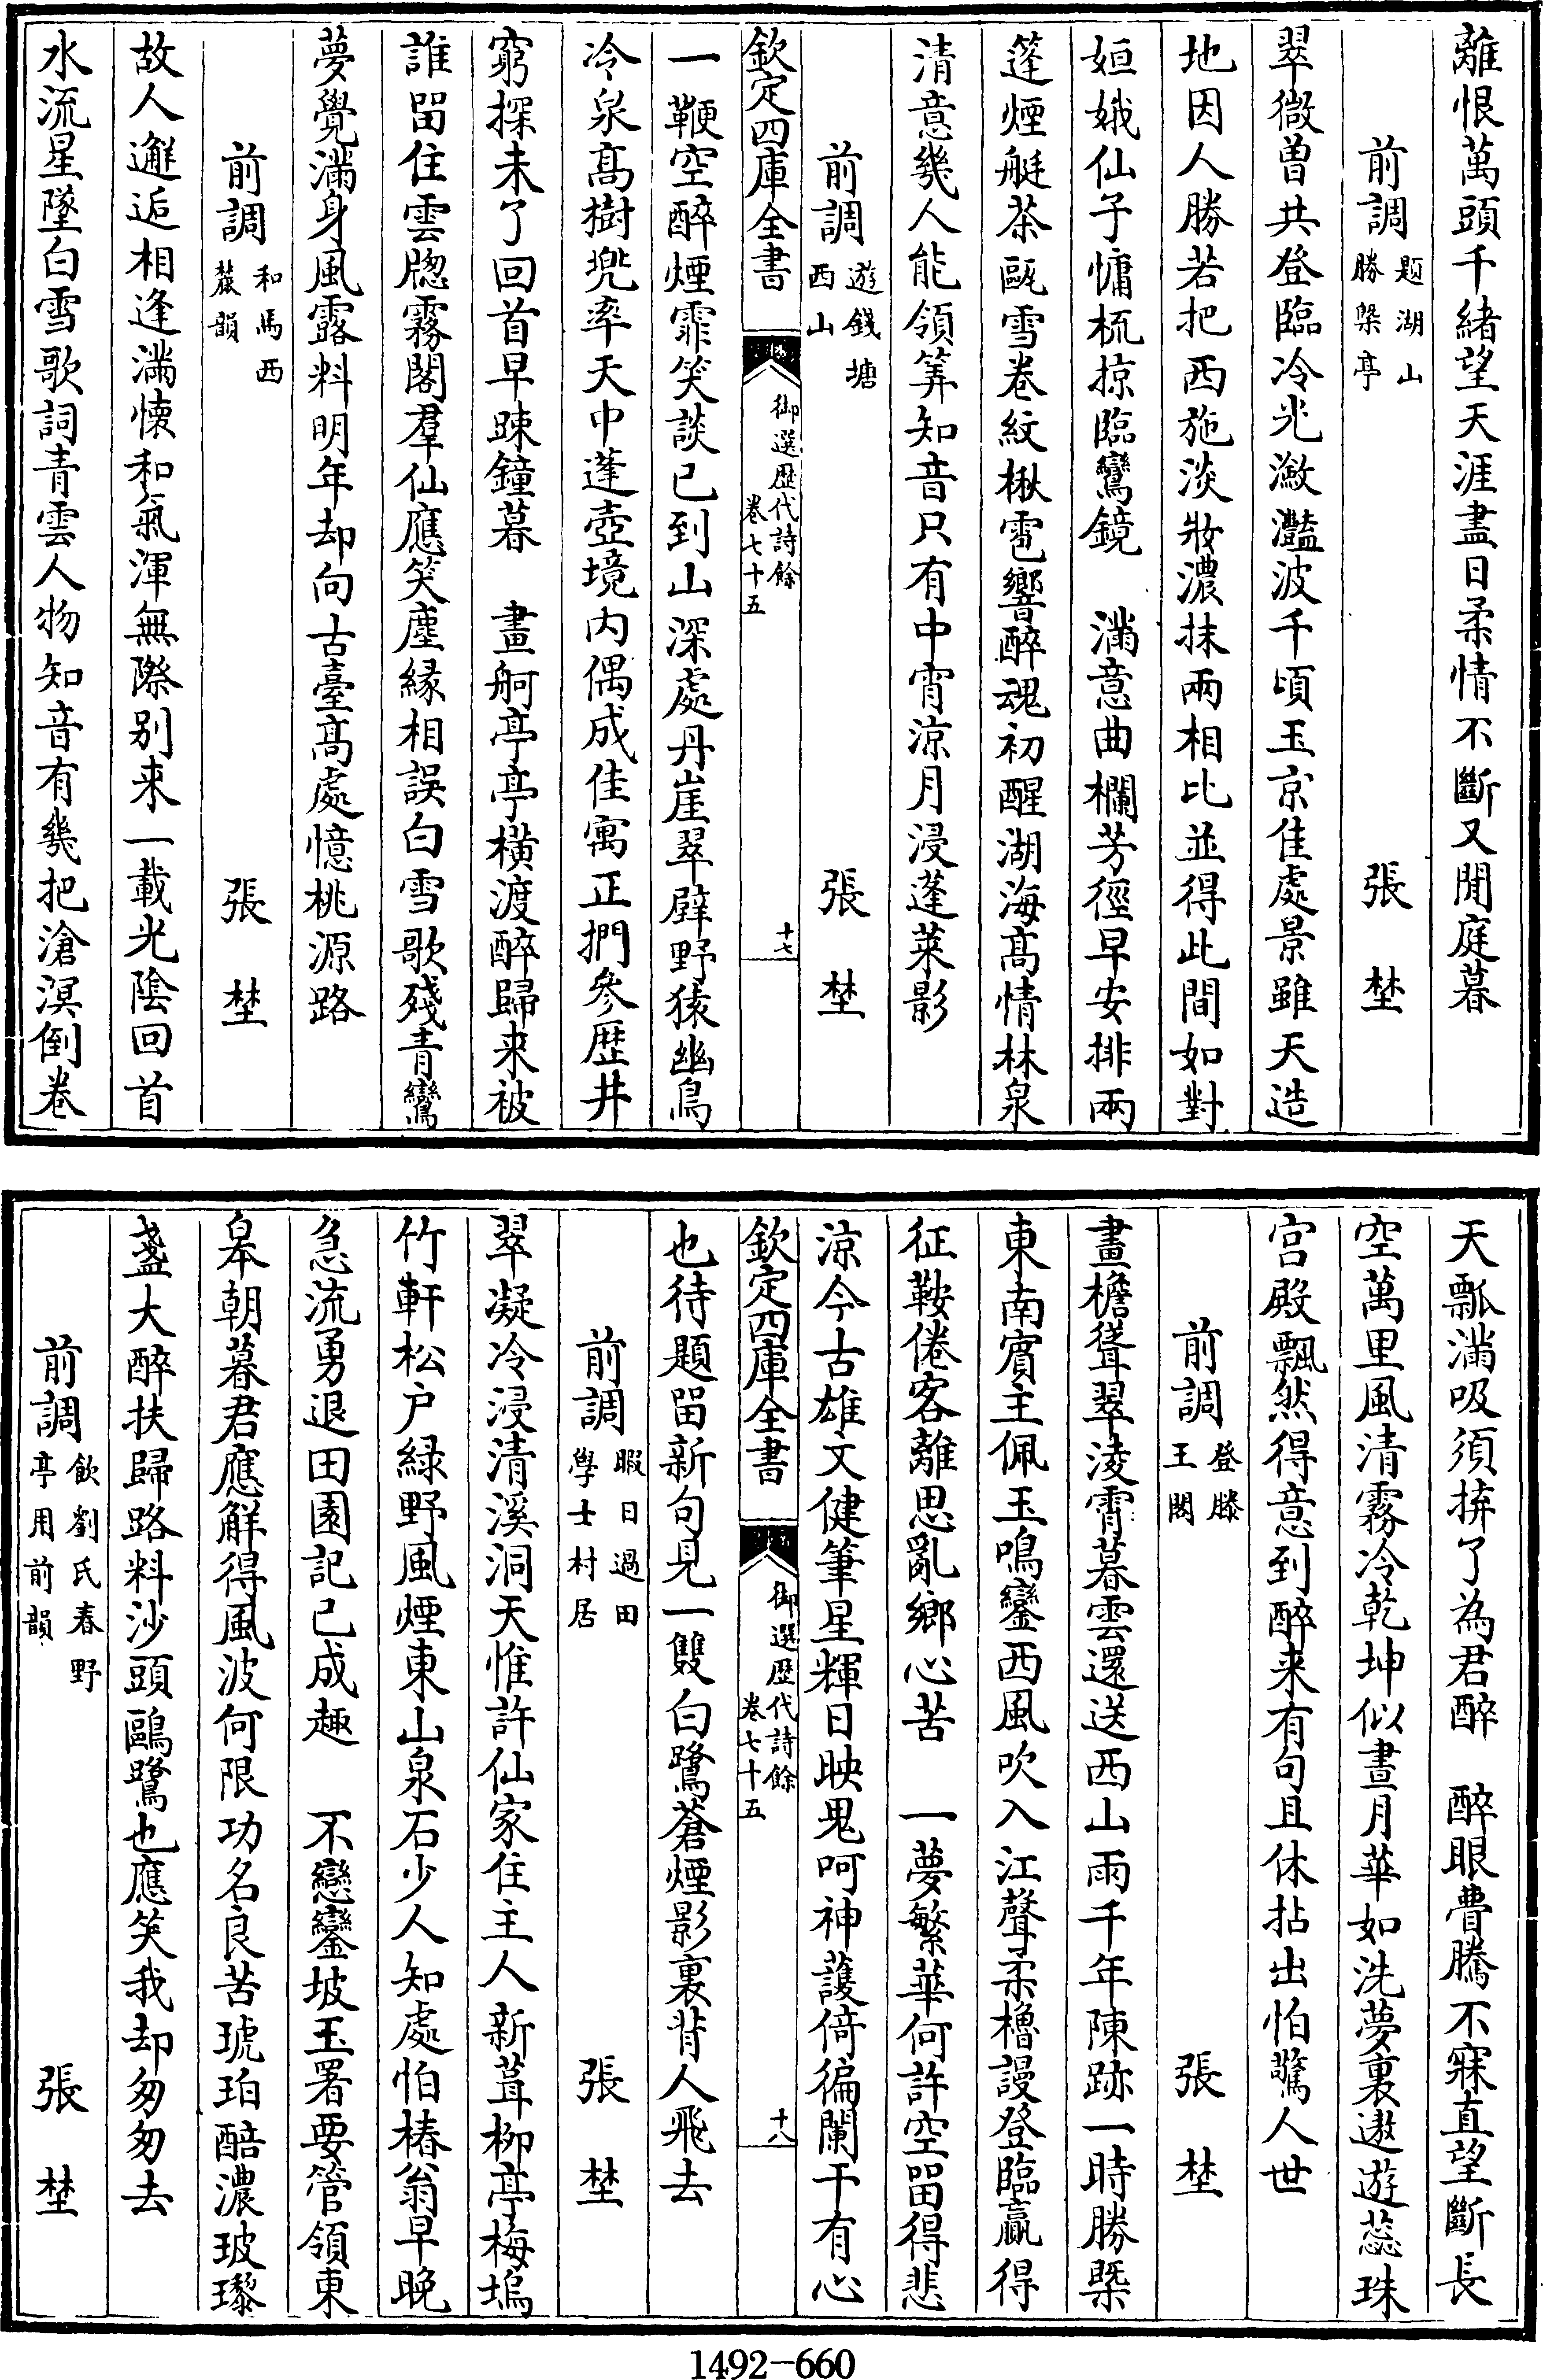 離恨萬頭千緒望天涯盡日柔情不斷又閒庭暮
前調題湖山勝槩亭　張埜
翠微曾共登臨冷光瀲灩波千頃玉京佳處景雖天造
地因人勝若把西施淡妝濃抹兩相比並得此間如對
姮娥仙子慵梳掠臨鸞鏡　滿意曲欄芳徑早安排兩
篷煙艇茶甌雪卷紋楸雹響醉魂初醒湖海高情林泉
清意幾人能領筭知音只有中宵涼月浸蓬萊影
前調遊錢塘西山　張埜
欽定四庫全書　御選歴代詩餘卷七十五　十七
一鞭空醉煙霏笑談已到山深處丹崖翠壁野猿幽鳥
冷泉髙樹兠率天中蓬壺境内偶成佳寓正捫參歴井
窮探未了回首早踈鐘暮　畫舸亭亭橫渡醉歸來被
誰留住雲牕霧閣羣仙應笑塵縁相誤白雪歌殘青鸞
夢覺滿身風露料明年却向古臺髙處憶桃源路
前調和馬西麓韻　張埜
故人邂逅相逢滿懐和氣渾無際别来一載光陰回首
水流星墜白雪歌詞青雲人物知音有幾把滄溟倒卷
天瓢滿吸須拚了為君醉　醉眼瞢騰不寐直望斷長
空萬里風清霧冷乾坤似晝月華如洗夢裏遨遊蕊珠
宫殿飄然得意到醉来有句且休拈出怕驚人世
前調登滕王閣　張埜
畫檐聳翠凌霄暮雲還送西山雨千年陳跡一時勝槩
東南賓主佩玉鳴鑾西風吹入江聲柔櫓謾登臨贏得
征鞍倦客離思亂鄉心苦　一夢繁華何許空留得悲
涼今古雄文健筆星輝日映鬼呵神護倚徧闌干有心
欽定四庫全書　御選歴代詩餘卷七十五　十八
也待題留新句見一雙白鷺蒼煙影裏背人飛去
前調暇日過田學士村居　張埜
翠凝冷浸清溪洞天惟許仙家住主人新葺柳亭梅塢
竹軒松户緑野風煙東山泉石少人知處怕椿翁早晚
急流勇退田園記已成趣　不戀鑾坡玉署要管領東
皋朝暮君應解得風波何限功名良苦琥珀醅濃玻瓈
盞大醉扶歸路料沙頭鷗鷺也應笑我却匆匆去
前調飲劉氏春野亭用前韻　張埜
1492-660